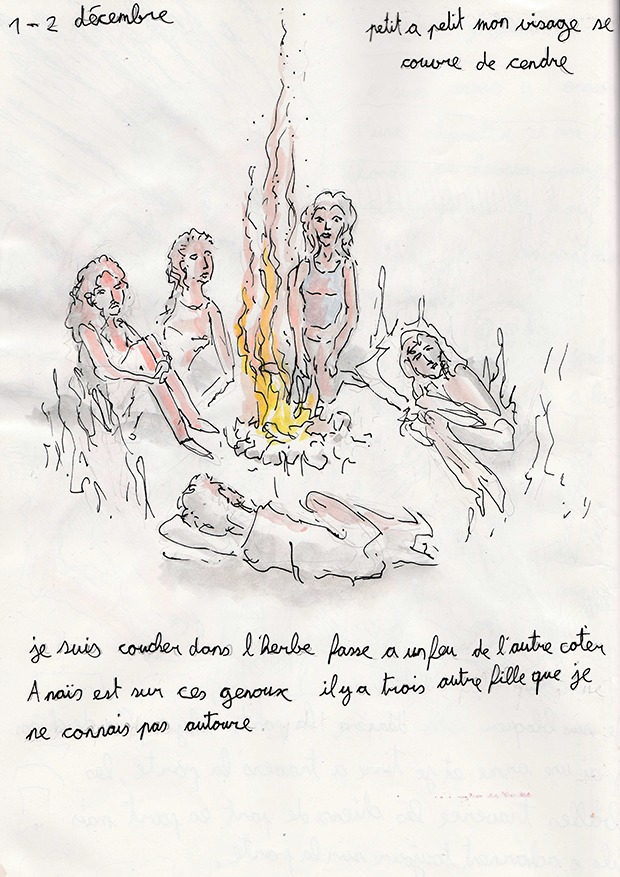 1-2 décembre
petit a petit mon visage se
couvre de cendre
je suis coucher dans l'herbe fasse a un feu de l'autre coter
Anaïs est sur ces genoux il y a trois autre fille que je
ne connais pas autoure.